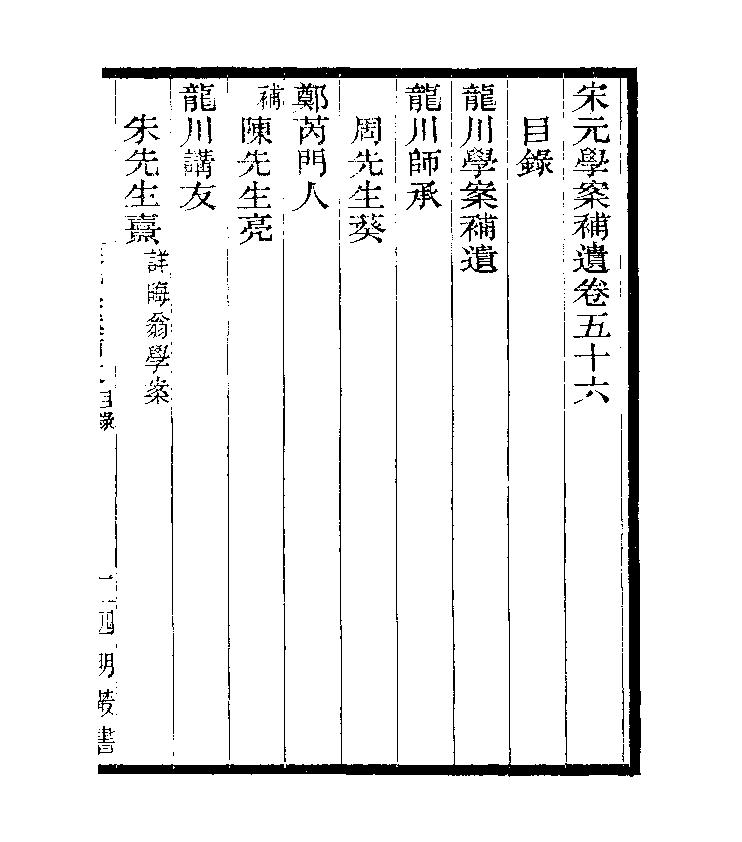 宋元學案補遺卷五十六
目錄
龍川學案補遺
龍川師承
周先生葵
鄭芮門人
補陳先生亮
龍川講友
朱先生熹 詳晦翁學案
目錄
四明叢書